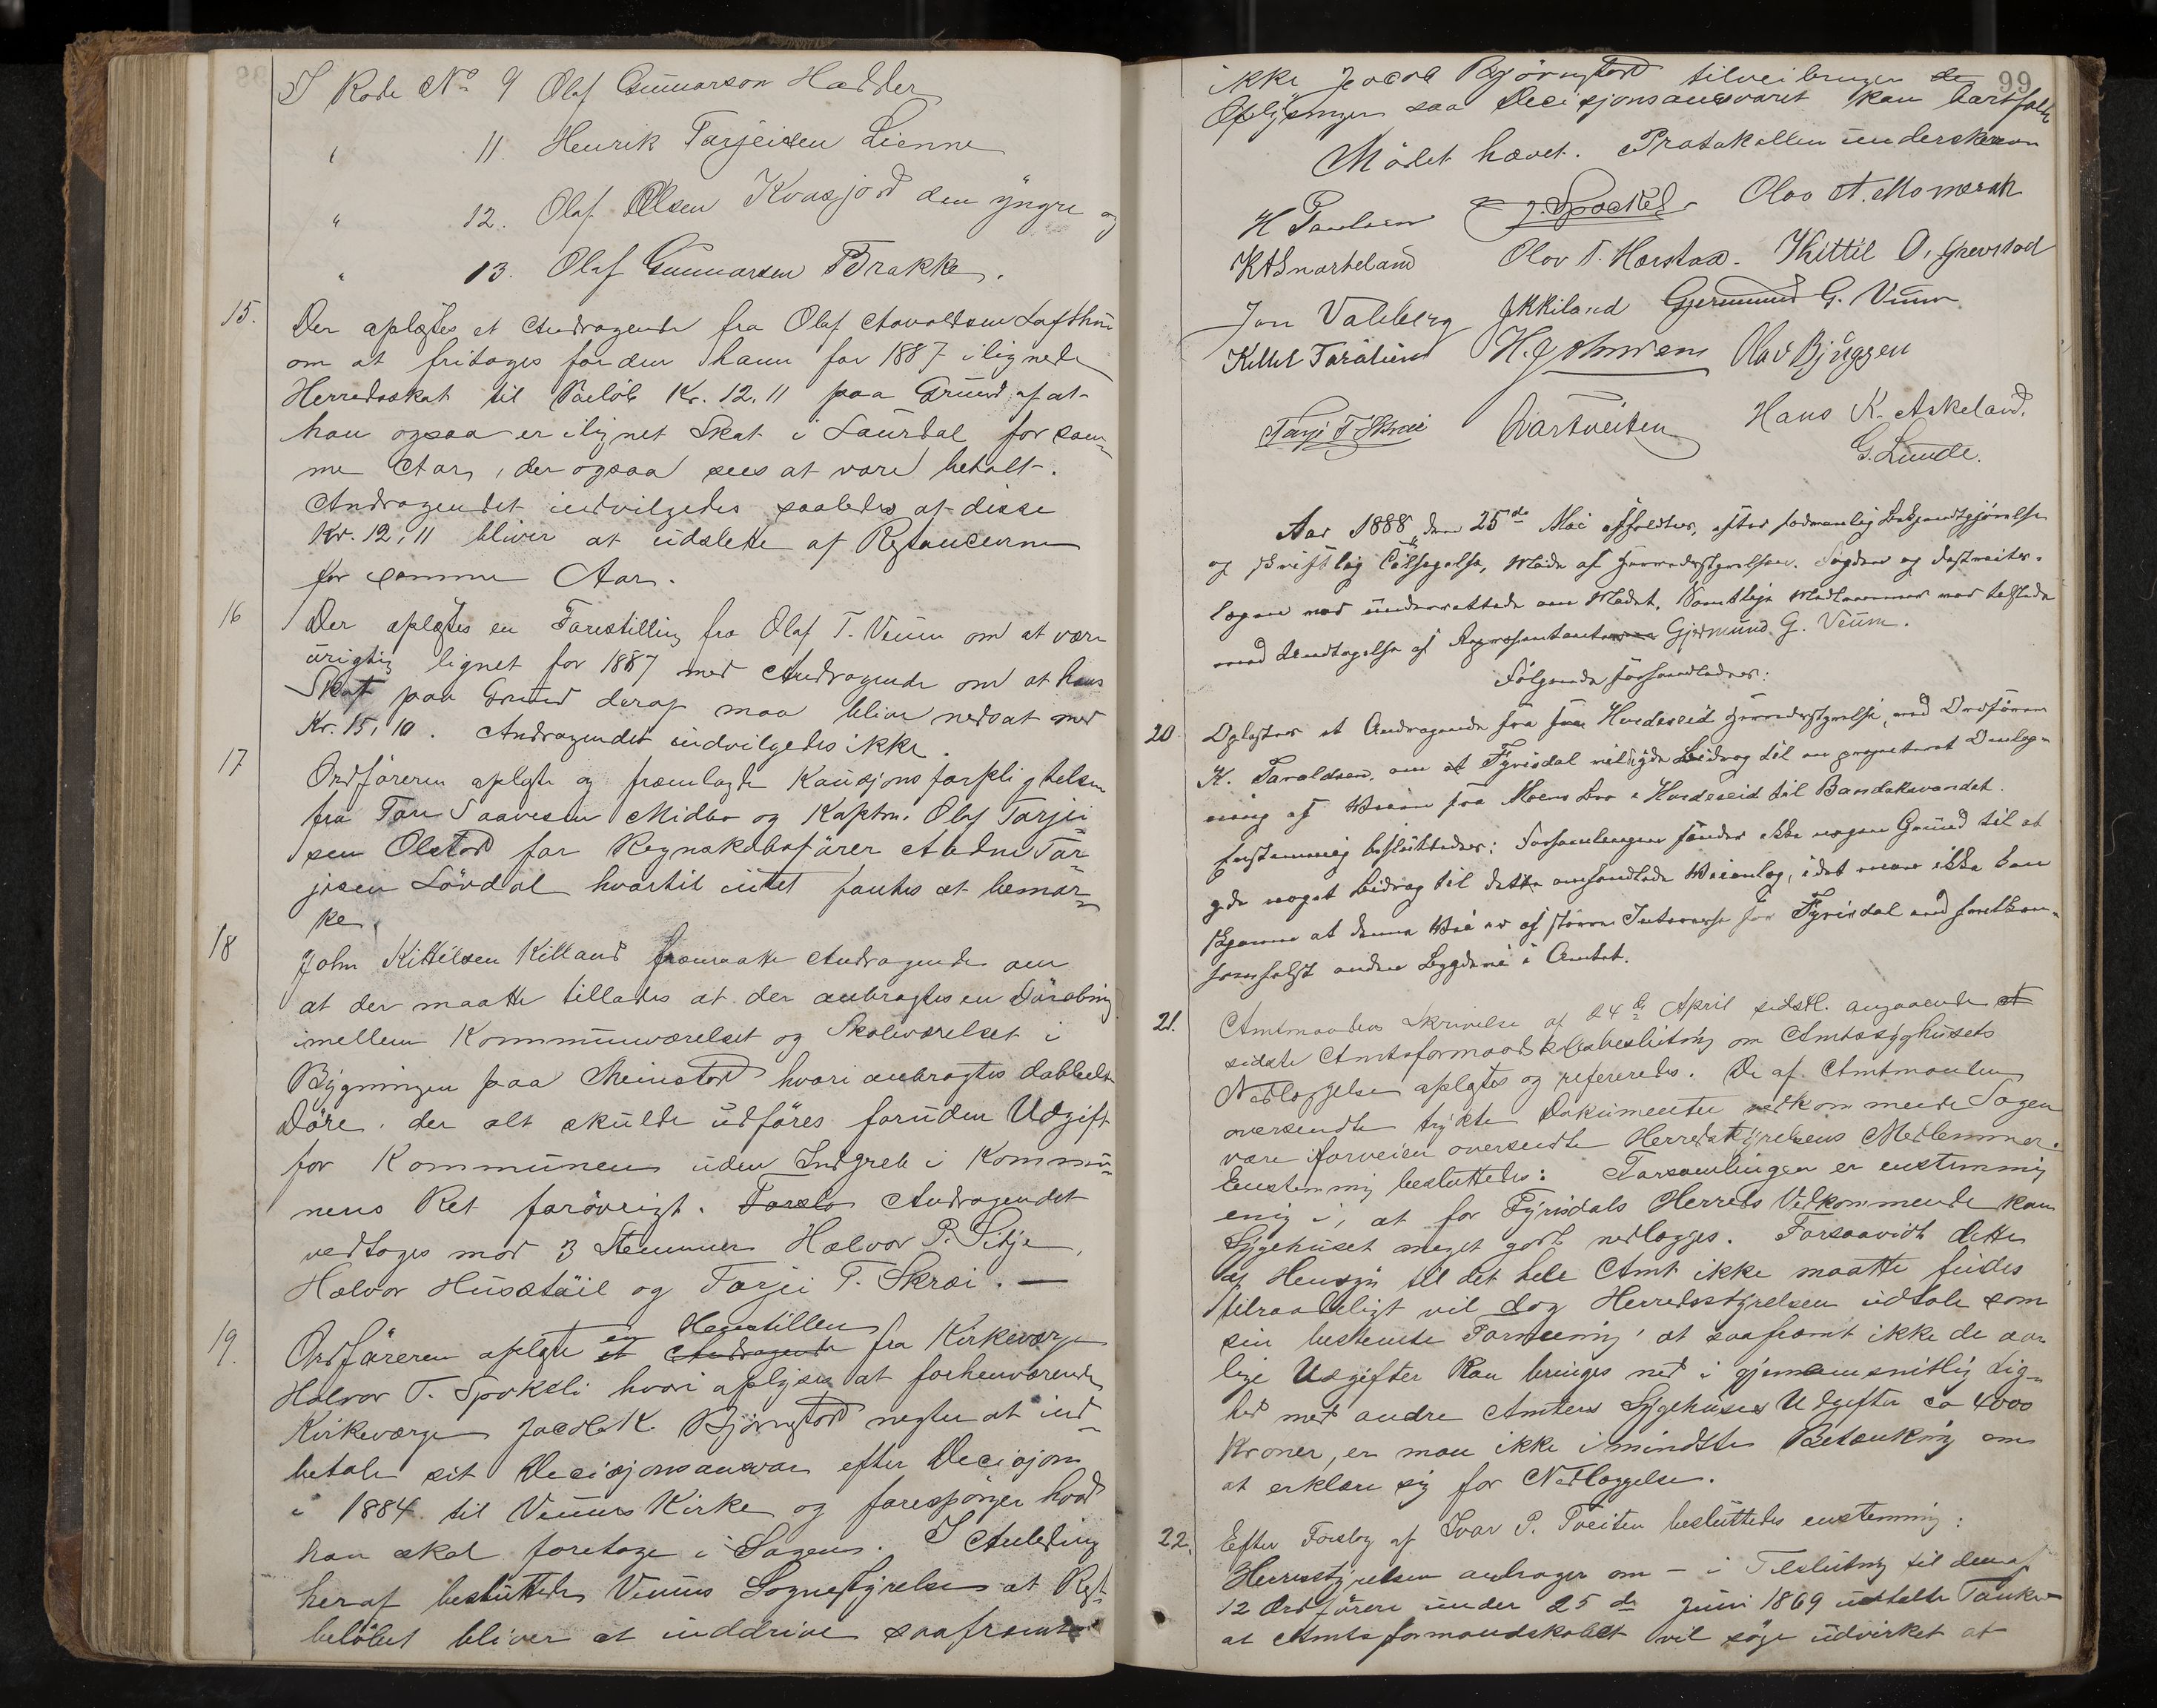 I Rode No 9 Olaf Gunnarson Hadder
" 11. Henrik Tarjeisen Lienne
" 12. Olaf Olsen Kvasjord den yngre og
" 13. Olaf Gunnarsen Brakke.
15. Der oplæstes et Andragende fra Olaf Aavoldsen Lofthus
om at fritages for den ham for 1887 ilignede
Herredsskat til Beløb Kr. 12,11 paa Grund af at
han ogsaa er ilignet Skat i Laurdal for sam-
me Aar, der ogsaa sees at være betalt.
Andragendet indvilgedes saaledes at disse
Kr. 12,11 bliver at udslette af Restancerne
for samme Aar.
16 Der oplæstes en Forestilling fra Olaf T. Veum om at være
urigtig lignet for 1887 med Andragende om at hans
Skat paa Grund deraf maa blive nedsat med
Kr. 15,10. Andragendet indvilgedes ikke.
17 Ordføreren oplæste og fremlagde Kausjonsforpligtelsen
fra Tore Saavesen Midbø og Kaptn. Olaf Tarjei-
sen Olstad for Regnskabsfører Aadne Tar-
jesen Løvdal hvortil intet fantes at bemær-
ke.
18 John Kittilsen Killand fremsatte Andragende om
at der maatte tillades at der anbragtes en Døraabning
imellem Kommuneværelset og Skoleværelset i
Bygningen paa Meinstad hvori anbragtes dobbelte
Døre, der alt skulde udføres foruden Udgift
for Kommunen uden Indgreb i Kommu-
nens Ret forøvrigt. Forslo Andragendet
vedtoges mod 3 Stemmer Halvor P. Sitje,
Halvor Husstøil og Tarjei T. Skræi. —
19. Ordføreren oplæste et Andragende en Henstillen fra Kirkeværge
Halvor T. Spokkeli hvori oplyses at forhenværende
Kirkeværge Jacob K. Bjørnstad negter at ind-
betale sit Decisjonsansvar efter Decisjon
i 1884 til Veums Kirke og forespørger hvad
han skal foretage i Sagen. I Anledning
heraf besluttede Veums Sognestyrelse at Rest-
beløbet bliver at inddrive saafremt
99
ikke Jacob Bjørnstad tilveibringer de
Oplysninger saa Decisjonsansvaret kan bortfalde
Mødet hævet. Protokollen underskreven
H Paulsen J. Spockeli Olav A. Momrak
K A Snarteland Olav T. Harstad. Kittil O. Grevstad
Jon Valeberg JKKiland Gjermund G. Veum
Ketil Taraldsen H. Johnsen Olav Bjuggen
Tarje T Skræi Svartveiten Hans K. Askeland.
G. Lunde.
Aar 1888 den 25de Mai afholdtes, efter sedvanlig Bekjendtgjørelse
og skriftlig Tilsigelse, Møde af Herredsstyrelsen. Fogden og Distrikts-
lægen var underrettede om Mødet. Samtlige Medlemmer var tilstede
med Undtagelse af Repræsentanterne Gjermund G. Veum.
Følgende forhandledes:
20 Oplæstes et Andragende fra fra Hvideseid Herredsstyrelse, ved Ordføreren
K. Taraldsen, om at Fyrisdal vil yde Bidrag til en projekteret Omlæg-
ning af Veien fra Moens Bro i Hvideseid til Bandaksvandet.
Enstemmig besluttedes: Forsamlingen finder ikke nogen Grund til at
yde noget Bidrag til dette omhandlede Veianlæg, idet man ikke kan
skjønne at denne Vei er af større Interesse for Fyrisdal end hvilken-
somhelst anden Bygdevei i Amtet.
21. Amtmandens Skrivelse af 24de April sidstl. angaaende et
sidste Amtsformandskabsbeslutning om Amtssygehusets
Nedlæggelse oplæstes og refereredes. De af Amtmanden
oversendte trykte Dokumenter vedkommende Sagen
være iforveien oversendte Herredsstyrelsens Medlemmer.
Enstemmig besluttedes: Forsamlingen er enstemmig
enig i, at for Fyrisdals Herreds Vedkommende kan
Sygehuset meget godt nedlægges. Forsaavidt dette
af Hensyn til det hele Amt ikke maatte findes
tilraadeligt vil dog Herredsstyrelsen udtale som
sin bestemte Formening, at saafremt ikke de aar-
lige Udgifter kan bringes ned i gjennemsnitlig Lig-
hed med andre Amters Sygehuses Udgifter ca 4000
Kroner, er man ikke i mindste Betænkning om
at erklære sig for Nedlæggelse.
22. Efter Forslag af Ivar P. Tveiten besluttedes enstemmig:
Herredsstyrelsen andrager om – i Tilslutning til den af
12 Ordførere under 25de Juni 1869 udtalte Tanke –
at Amtsformandskabet vil søge udvirket at